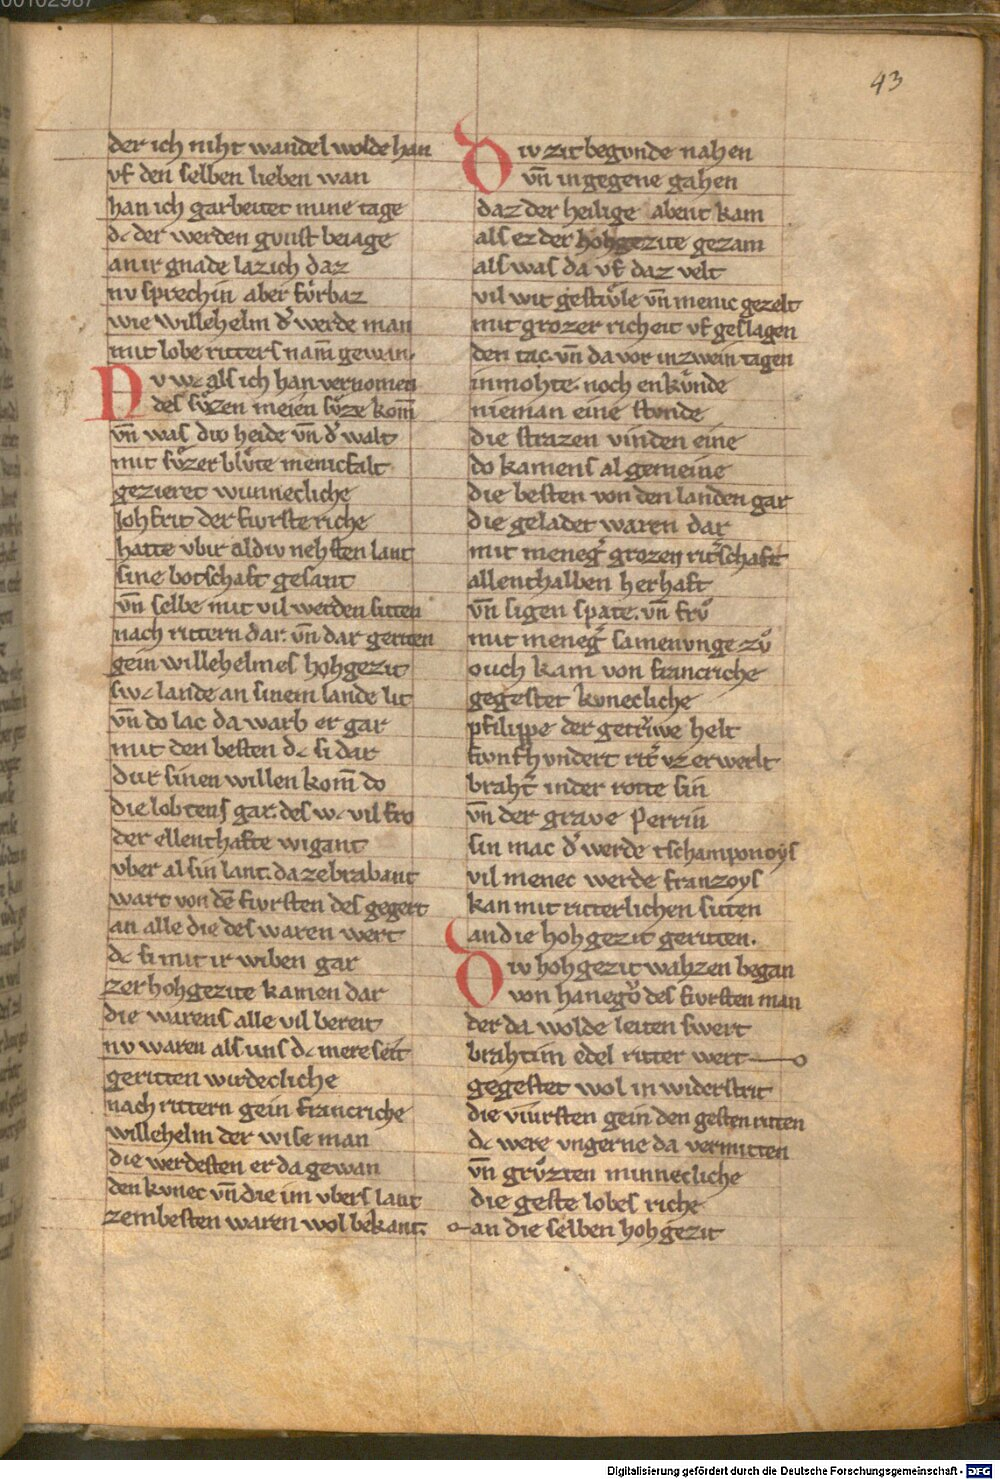 43
der ich niht wandel wolde han
vf den selben lieben wan
han ich garbeitet mine tage
dc der werden gunst beiage
an ir gnade laz ich daz
nv sprechin aber fv̊rbaz
wie willehelm d̓ werde man
mit lobe ritters nam̄ gewan.
Nv wc als ich han vernomen
des sv̊zen meien sv̊ze kom̄
vn̄ was div heide vn̄ d̓ walt
mit sv̊zer blv̊te menicfalt
gezieret wunnecliche
Johfrit der fvrste riche
hatte vbir aldiv nehsten lant
sine botschaft gesant
vn̄ selbe mit vil werden sitten
nach rittern dar. vn̄ dar geritten
gein willehelmes hohgezit
swc lande an sinem lande lit
vn̄ do lac da warb er gar
mit den besten dc si dar
dur sinen willen kom̄ do
die lobtens gar. des wc vil fro
der ellenthafte wigant
vber al sin lant. da zebrabant
wart von dē fvrsten des gegert
an alle die des waren wert
dc si mit ir wiben gar
zer hohgezite kamen dar
die warens alle vil bereit
nv waren als uns dc mere seit
geritten wirdecliche
nach rittern gein francriche
willehelm der wise man
die werdesten er da gewan
den kvnec vn̄ die im vbers lant
zembesten waren wol bekant.
Div zit begvnde nahen
vn̄ in gegene gahen
daz der heilige abent kam
als ez der hohgezite gezam
als was da vf daz velt
vil wit gestv̊le vn̄ menic gezelt
mit grozer richeit vf geslagen
den tac. vn̄ da vor in zwein tagen
in mohte. noch enkv̊nde
nieman eine stvnde
die strazen vinden eine
do kamens al gemeine
die besten von den landen gar
die geladet waren dar
mit meneg̓ grozen rit̓schaft
allenthalben herhaft
vn̄ sigen spate. vn̄ frv̊
mit meneg̓ samenvnge zv̊
ouch kam von francriche
gegestet kvnecliche
pfilippe der getrv̊we helt
fvnfhvndert rit̓ vz erwelt
braht̓ in der rotte sin
vn̄ der grave Perrin
sin mac d̓ werde tschamponoys
vil menec werde franzoys
kan mit ritterlichen sitten
an die hohgezit geritten.
Div hohgezit wahzen began
von hanegȏ des fvrsten man
der da wolde leiten swert
brahtim edel ritter wert
gegestet wol in widerstrit
die viursten gein den gesten ritten
dc were vngerne da vermitten
vn̄ grv̊zten minnecliche
die geste lobes riche
an die selben hohgezit
Digitalisierung gefördert durch die Deutsche Forschungsgemeinschaft - DFG